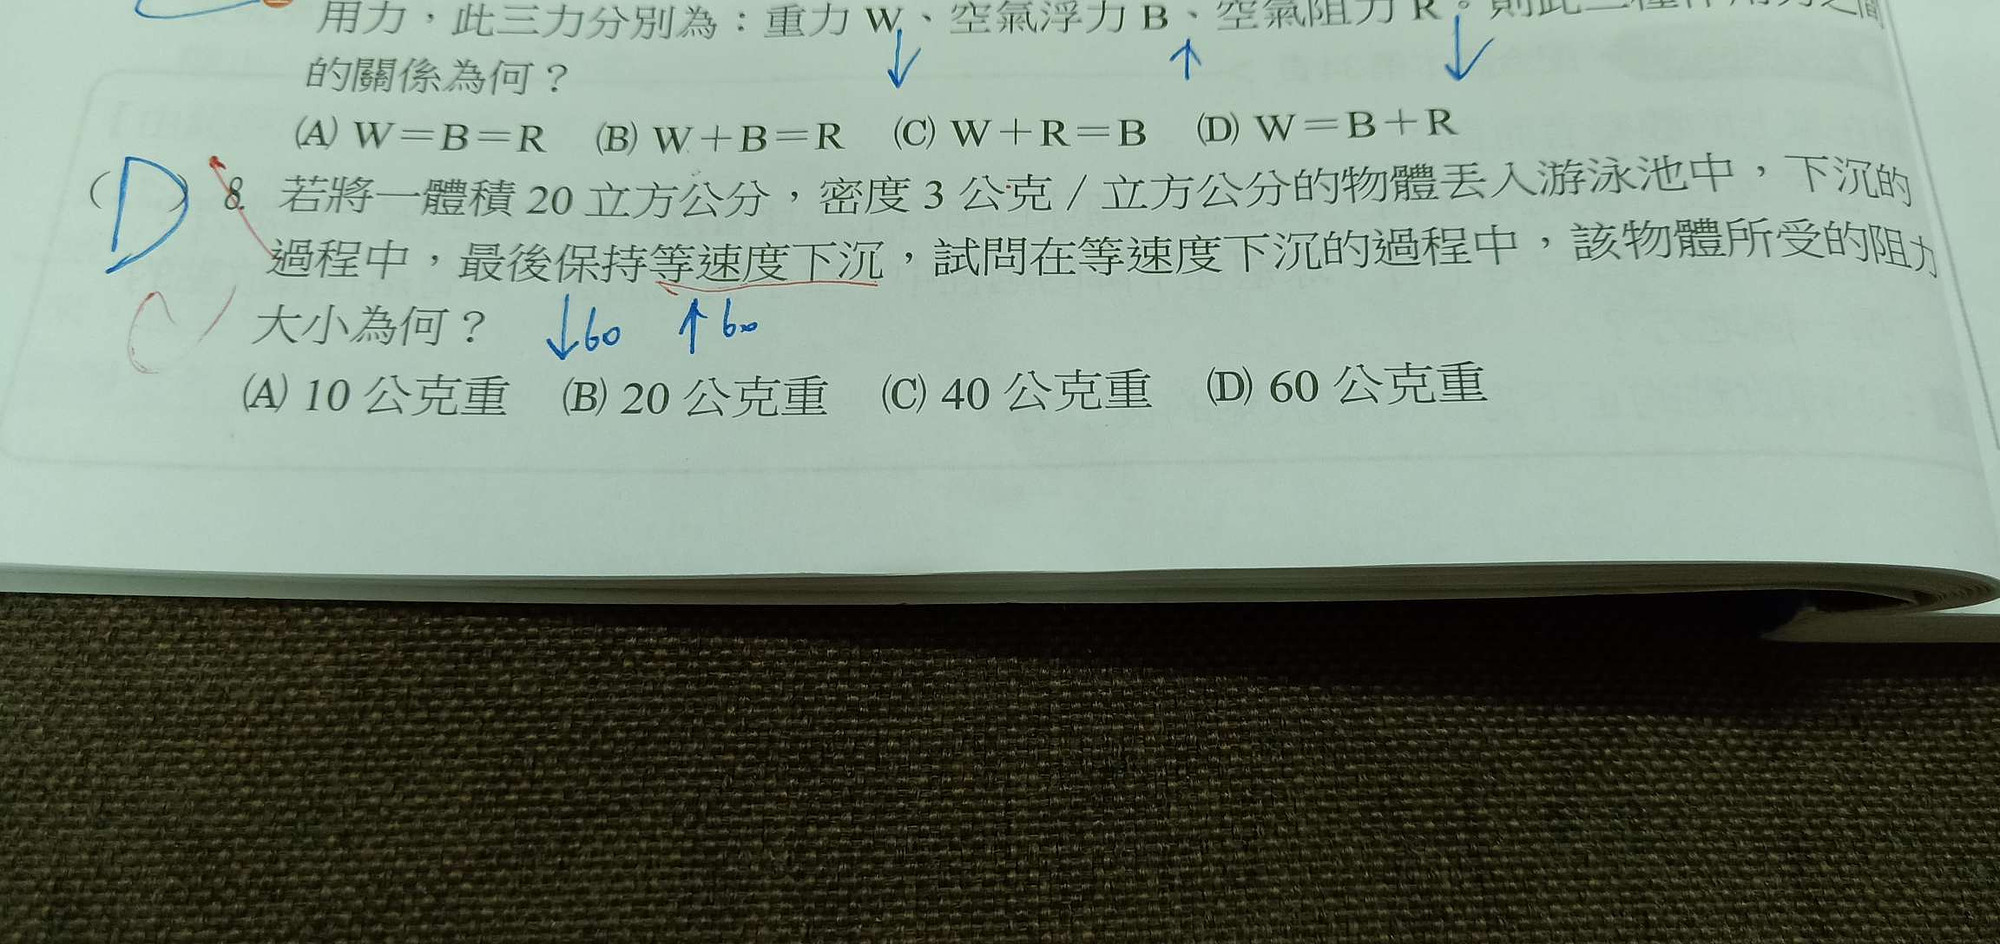 用力，此三力分別為：重力 W、空氣浮力 B、空氣阻力 R。則此三種作用力之間
的關係為何？
(A) W＝B＝R (B) W＋B＝R (C) W＋R＝B (D) W＝B＋R
( D ) 8. 若將一體積 20 立方公分，密度 3 公克／立方公分的物體丟入游泳池中，下沉的
過程中，最後保持等速度下沉，試問在等速度下沉的過程中，該物體所受的阻力
大小為何？ ↓60 ↑60
C
(A) 10 公克重 (B) 20 公克重 (C) 40 公克重 (D) 60 公克重